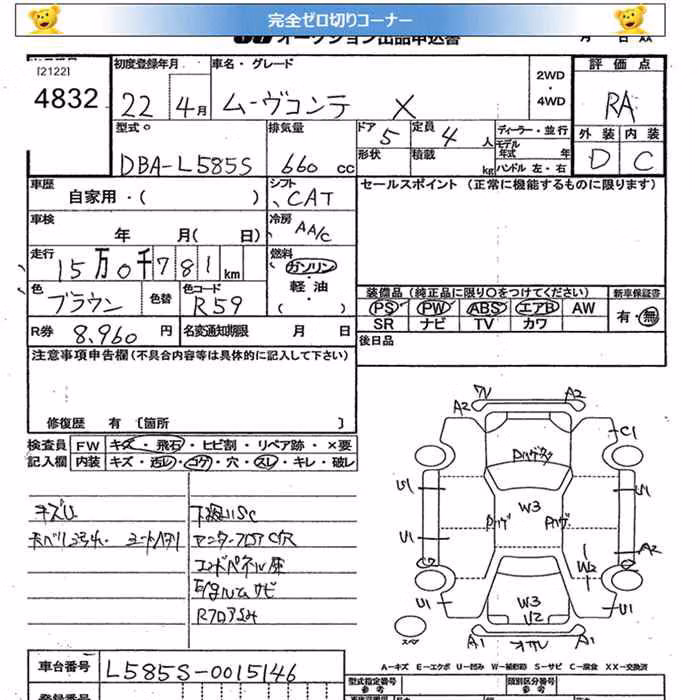 完全ゼロ切りコーナー
オークション出品申込書
[2122]
4832
初度登録年月 車名・グレード
22 4月 ムーヴコンテ X
2WD
・
4WD
評価点
RA
外装 内装
D C
型式 排気量 ドア 定員 ディーラー・並行
DBA-L585S 660 CC 5 4人
形状 積載 kg
モデル年式 年
ハンドル 左・右
車歴 シフト セールスポイント (正常に機能するものに限ります)
自家用・( ) CAT
車検 冷房
年 月( 日) AA/C
走行 燃料
15万0千781km ガソリン・軽油・( )
色 色替 色コード
ブラウン R59
装備品(純正品に限り○をつけてください) 新車保証書
PS PW ABS エアB AW 有・無
SR ナビ TV カワ
R券 8,960円 名変通知期限 月 日
後日品
注意事項申告欄(不具合内容等は具体的に記入して下さい)
修復歴 有 [箇所 ]
検査員 FW キズ・飛石・ヒビ割・リペア跡・×要
記入欄 内装 キズ・汚レ・コゲ・穴・スレ・キレ・破レ
キズU 下廻りSC
アンダーフロアC穴
エンドペネル
Rフロア
ワレ
A2 A2
C1
U1 U1
W3
U1 A2
W2
W3
U2
U1 U1
A1 A1
スペ
A-キズ E-エクボ U-凹み W-補修跡 S-サビ C-腐食 XX-交換済
車台番号 L585S-0015146
型式指定番号 参考 類別区分番号 参考
登録番号